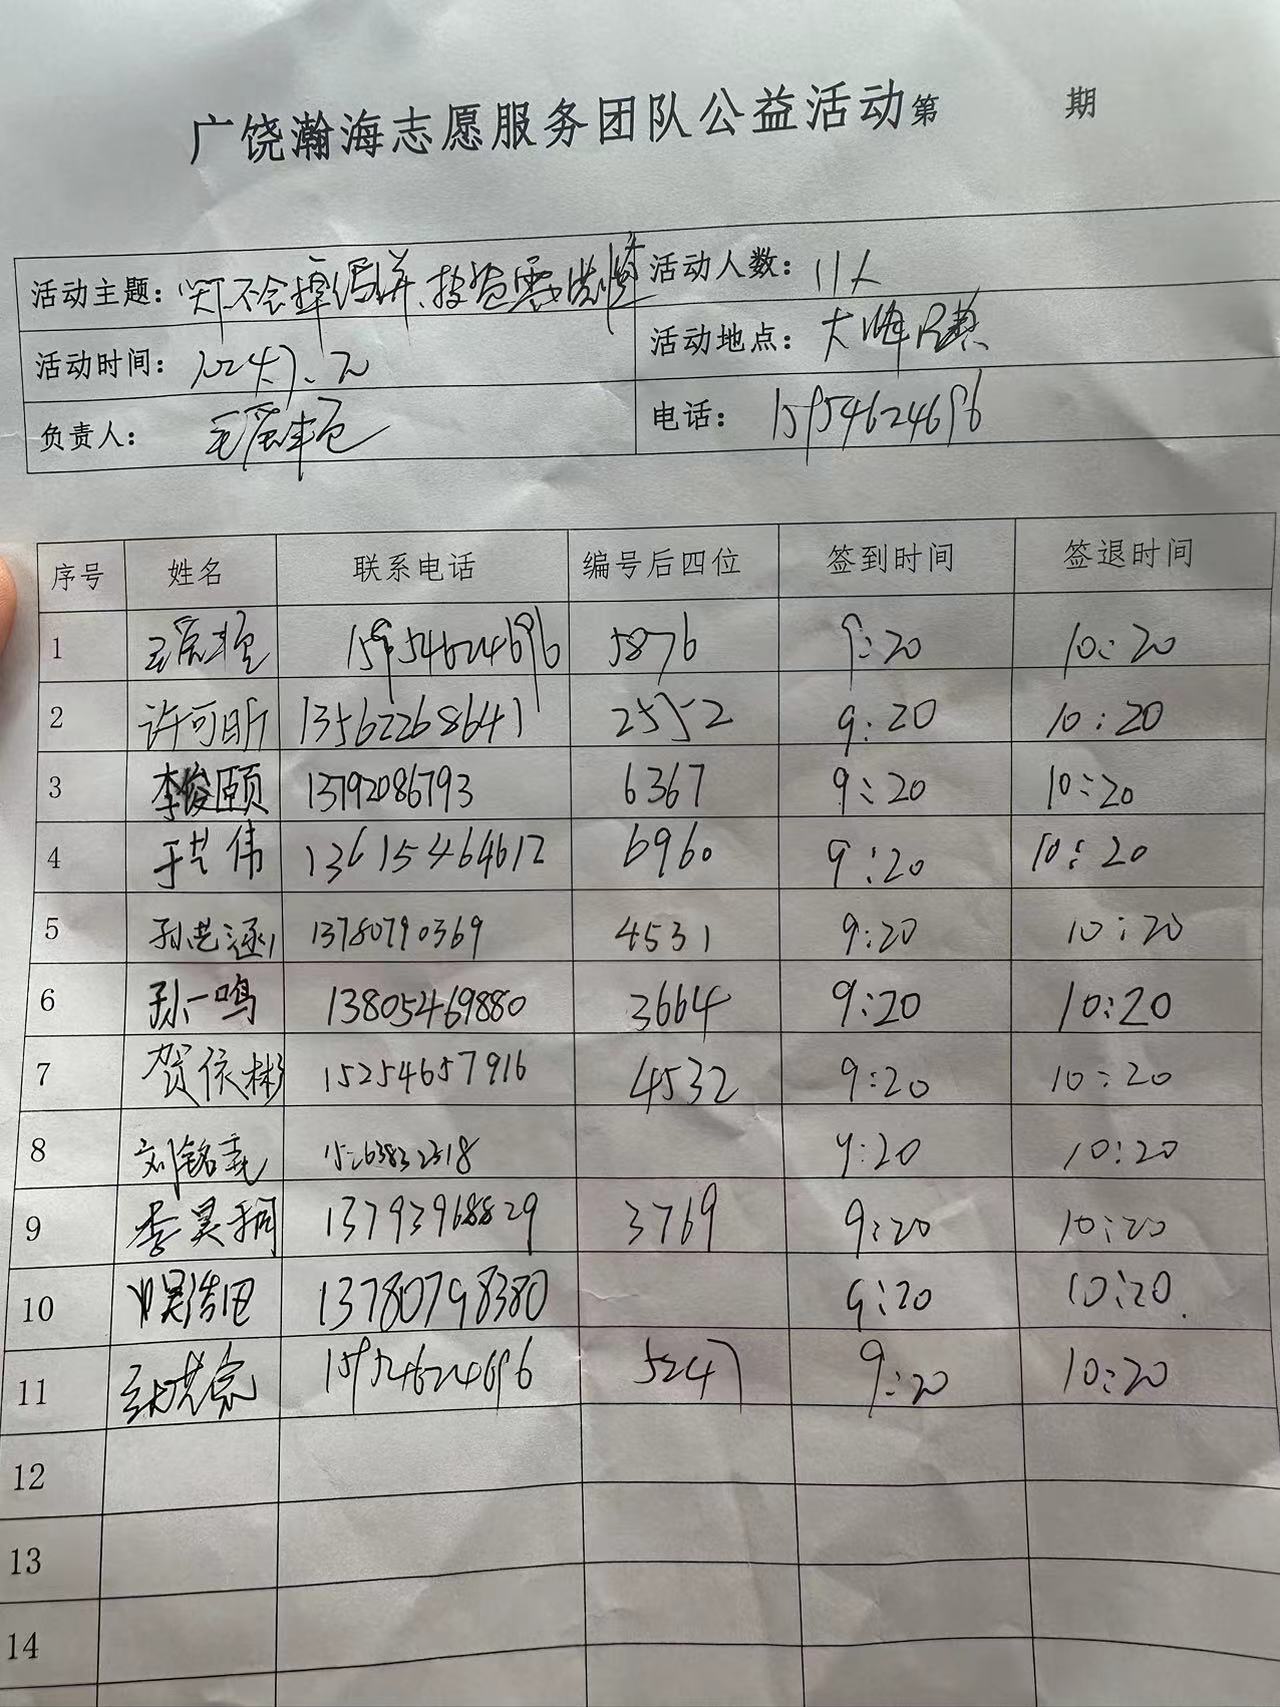 广饶瀚海志愿服务团队公益活动第 期
活动主题: 天不会掉馅饼、投资需谨慎 活动人数: 11人
活动时间: 2024.7.20 活动地点: 大
负责人: 电话: 15954624696
序号 姓名 联系电话 编号后四位 签到时间 签退时间
1 15954624696 5876 9:20 10:20
2 许可昕 13562268641 2552 9:20 10:20
3 李俊颐 13792086793 6367 9:20 10:20
4 于芒伟 13615464612 6960 9:20 10:20
5 孙艺涵 13780790369 4531 9:20 10:20
6 孙一鸣 13805469880 3664 9:20 10:20
7 贺依彬 15254657916 4532 9:20 10:20
8 刘铭尧 9:20 10:20
9 李昊桐 13793968829 3769 9:20 10:20
10 13780798380 9:20 10:20
11 15954624696 5247 9:20 10:20
12
13
14